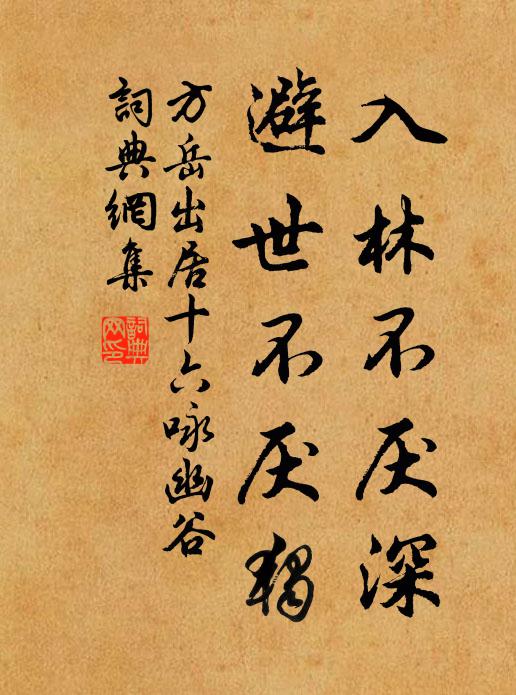 入林不厌深
避世不厌独
方岳出居十六咏幽谷
詞典網集
詞典網印